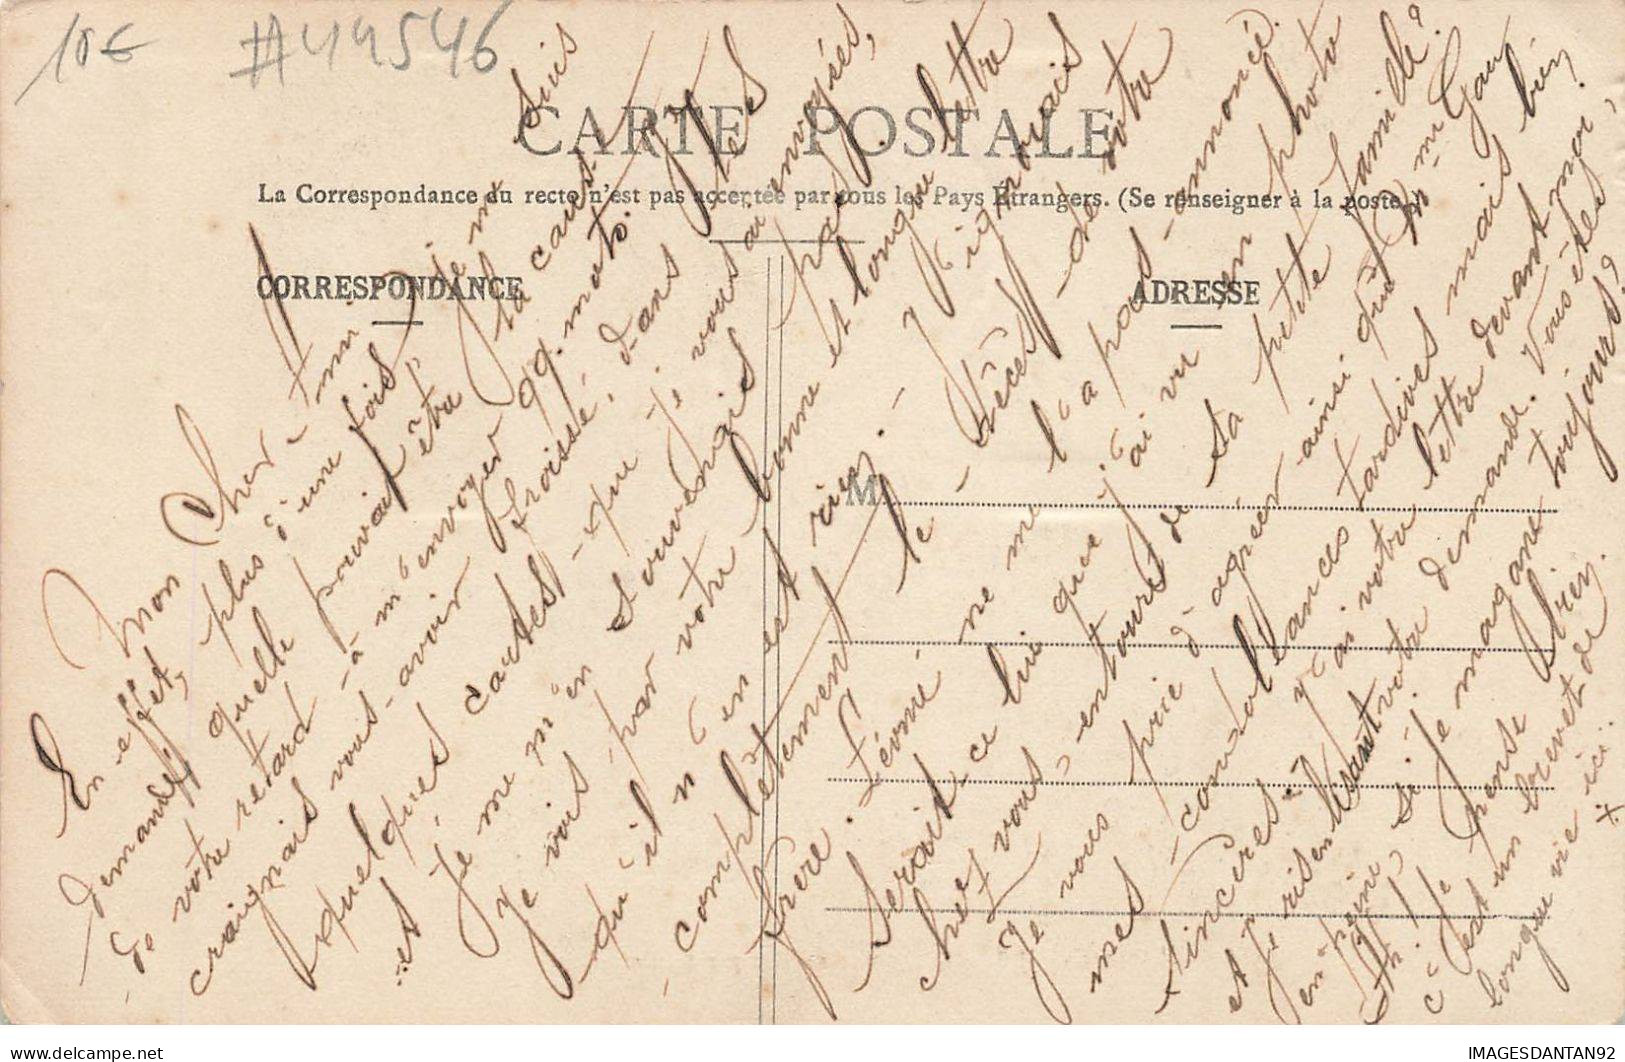 10€
#49546
CARTE POSTALE
La Correspondance du recto n'est pas acceptée par tous les Pays Étrangers. (Se renseigner à la poste.)
CORRESPONDANCE
ADRESSE
M.
Mon Cher Ami
En effet, plus d'une fois, je me suis
demandé quelle pouvait être la cause
de votre retard à m'envoyer qq. mots. Je
craignais vous avoir froissé, dans les
quelques cartes que je vous ai envoyées,
et je m'en souvenais pas.
Je vois par votre bonne et longue lettre
qu'il n'en est rien. J'ignorais
complètement le décès de votre
frère. Léonie ne me l'a pas annoncé.
Serait-ce lui que j'ai vu en photo
chez vous, entouré de sa petite famille?
Je vous prie d'agréer ainsi que Mme Gau
mes condoléances tardives mais bien
sincères. J'ai votre lettre devant moi,
et je ris en lisant votre demande. Vous êtes
en peine si je magane toujours?
Ah! je pense bien.
c'est un brevet de
longue vie ici.
IMAGESDANTAN92